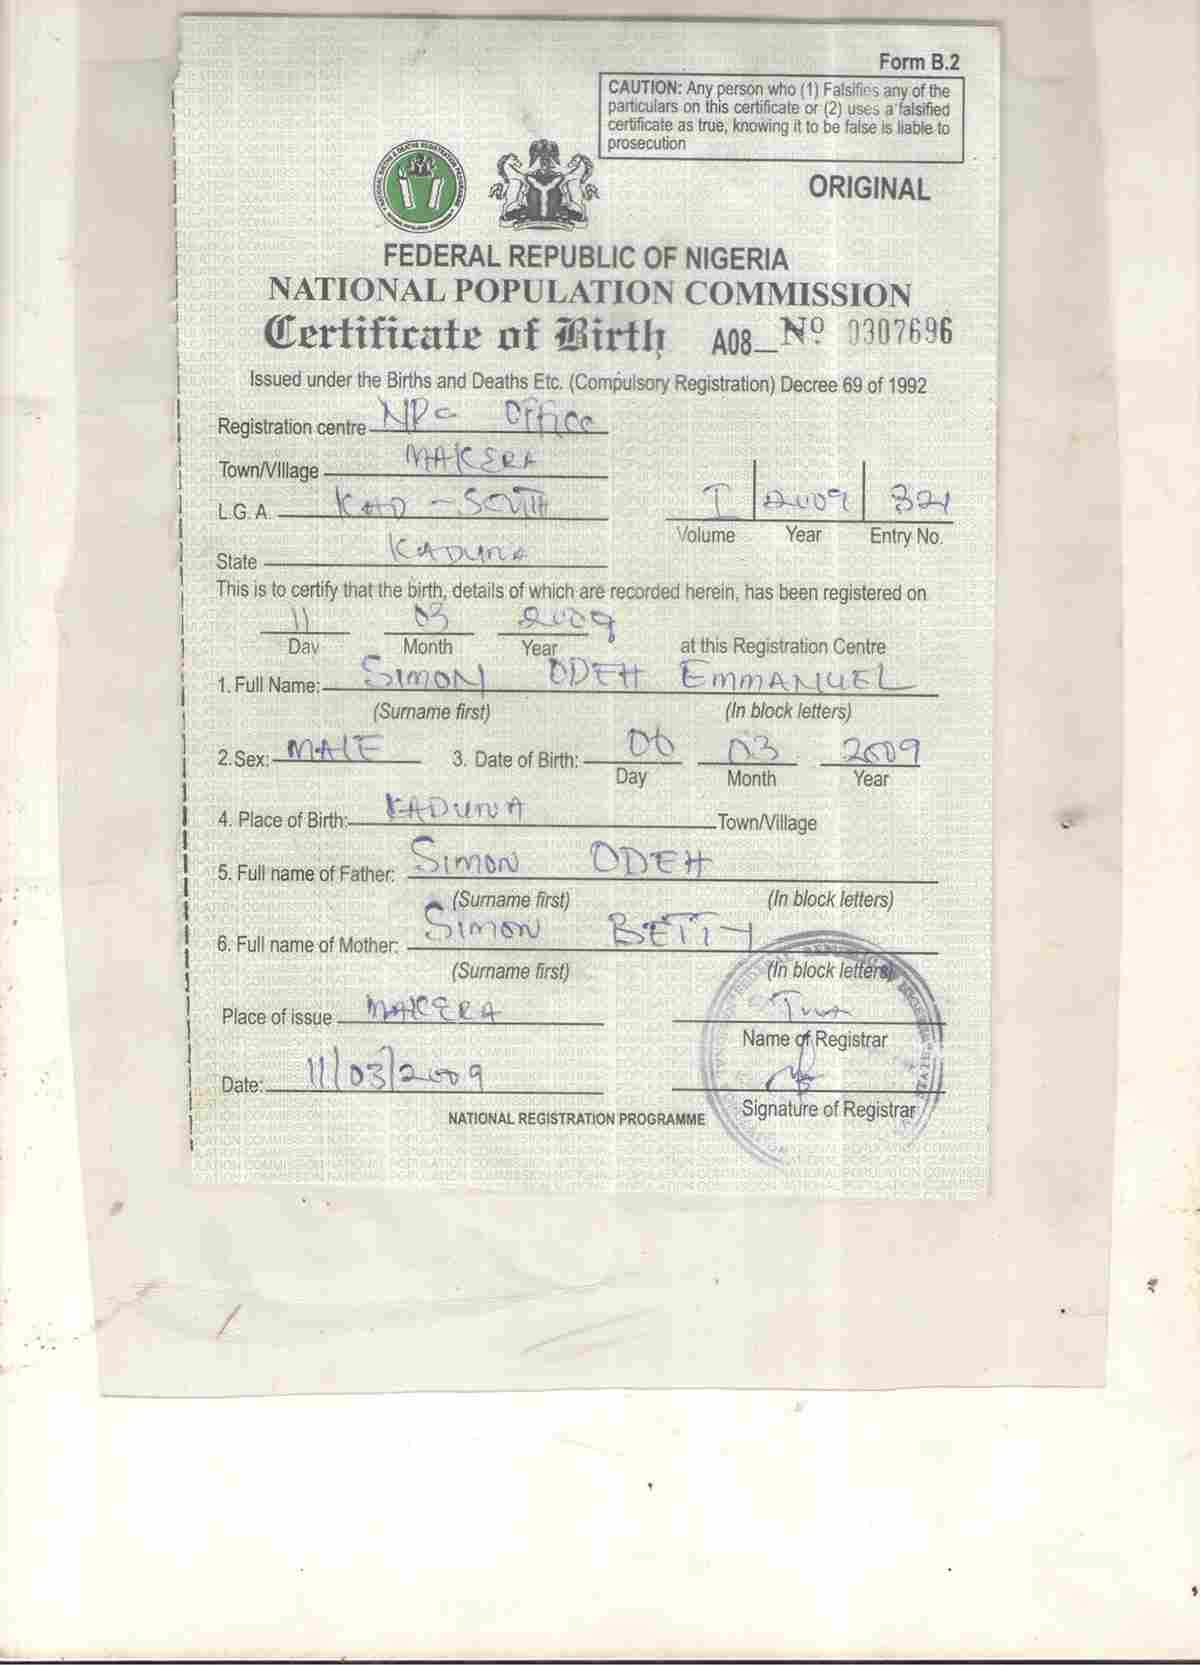 Form B.2
CAUTION: Any person who (1) Falsifies any of the
particulars on this certificate or (2) uses a falsified
certificate as true, knowing it to be false is liable to
prosecution
ORIGINAL
FEDERAL REPUBLIC OF NIGERIA
NATIONAL POPULATION COMMISSION
Certificate of Birth A08 Nº 0307696
Issued under the Births and Deaths Etc. (Compulsory Registration) Decree 69 of 1992
Registration centre NPC OFFICE
Town/Village MAKERA
L.G.A. KAD - SOUTH
I 2009 321
Volume Year Entry No.
State KADUNA
This is to certify that the birth, details of which are recorded herein, has been registered on
11 03 2009
Day Month Year at this Registration Centre
1. Full Name: SIMON ODEH EMMANUEL
(Surname first) (In block letters)
2. Sex: MALE 3. Date of Birth: 06 03 2009
Day Month Year
4. Place of Birth: KADUNA Town/Village
5. Full name of Father: SIMON ODEH
(Surname first) (In block letters)
6. Full name of Mother: SIMON BETTY
(Surname first) (In block letters)
Place of issue MAKERA
Name of Registrar
Date: 11/03/2009
Signature of Registrar
NATIONAL REGISTRATION PROGRAMME